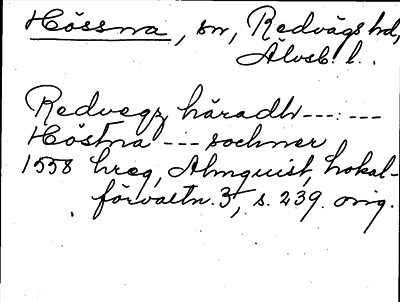 Hössna, sn, Redvägs hd,
Älvsb. l.
Redvegz häradh --- : ---
Höstna --- sochner
1558 hreg, Almquist, Lokal-
förvaltn. 3, s. 239. orig.